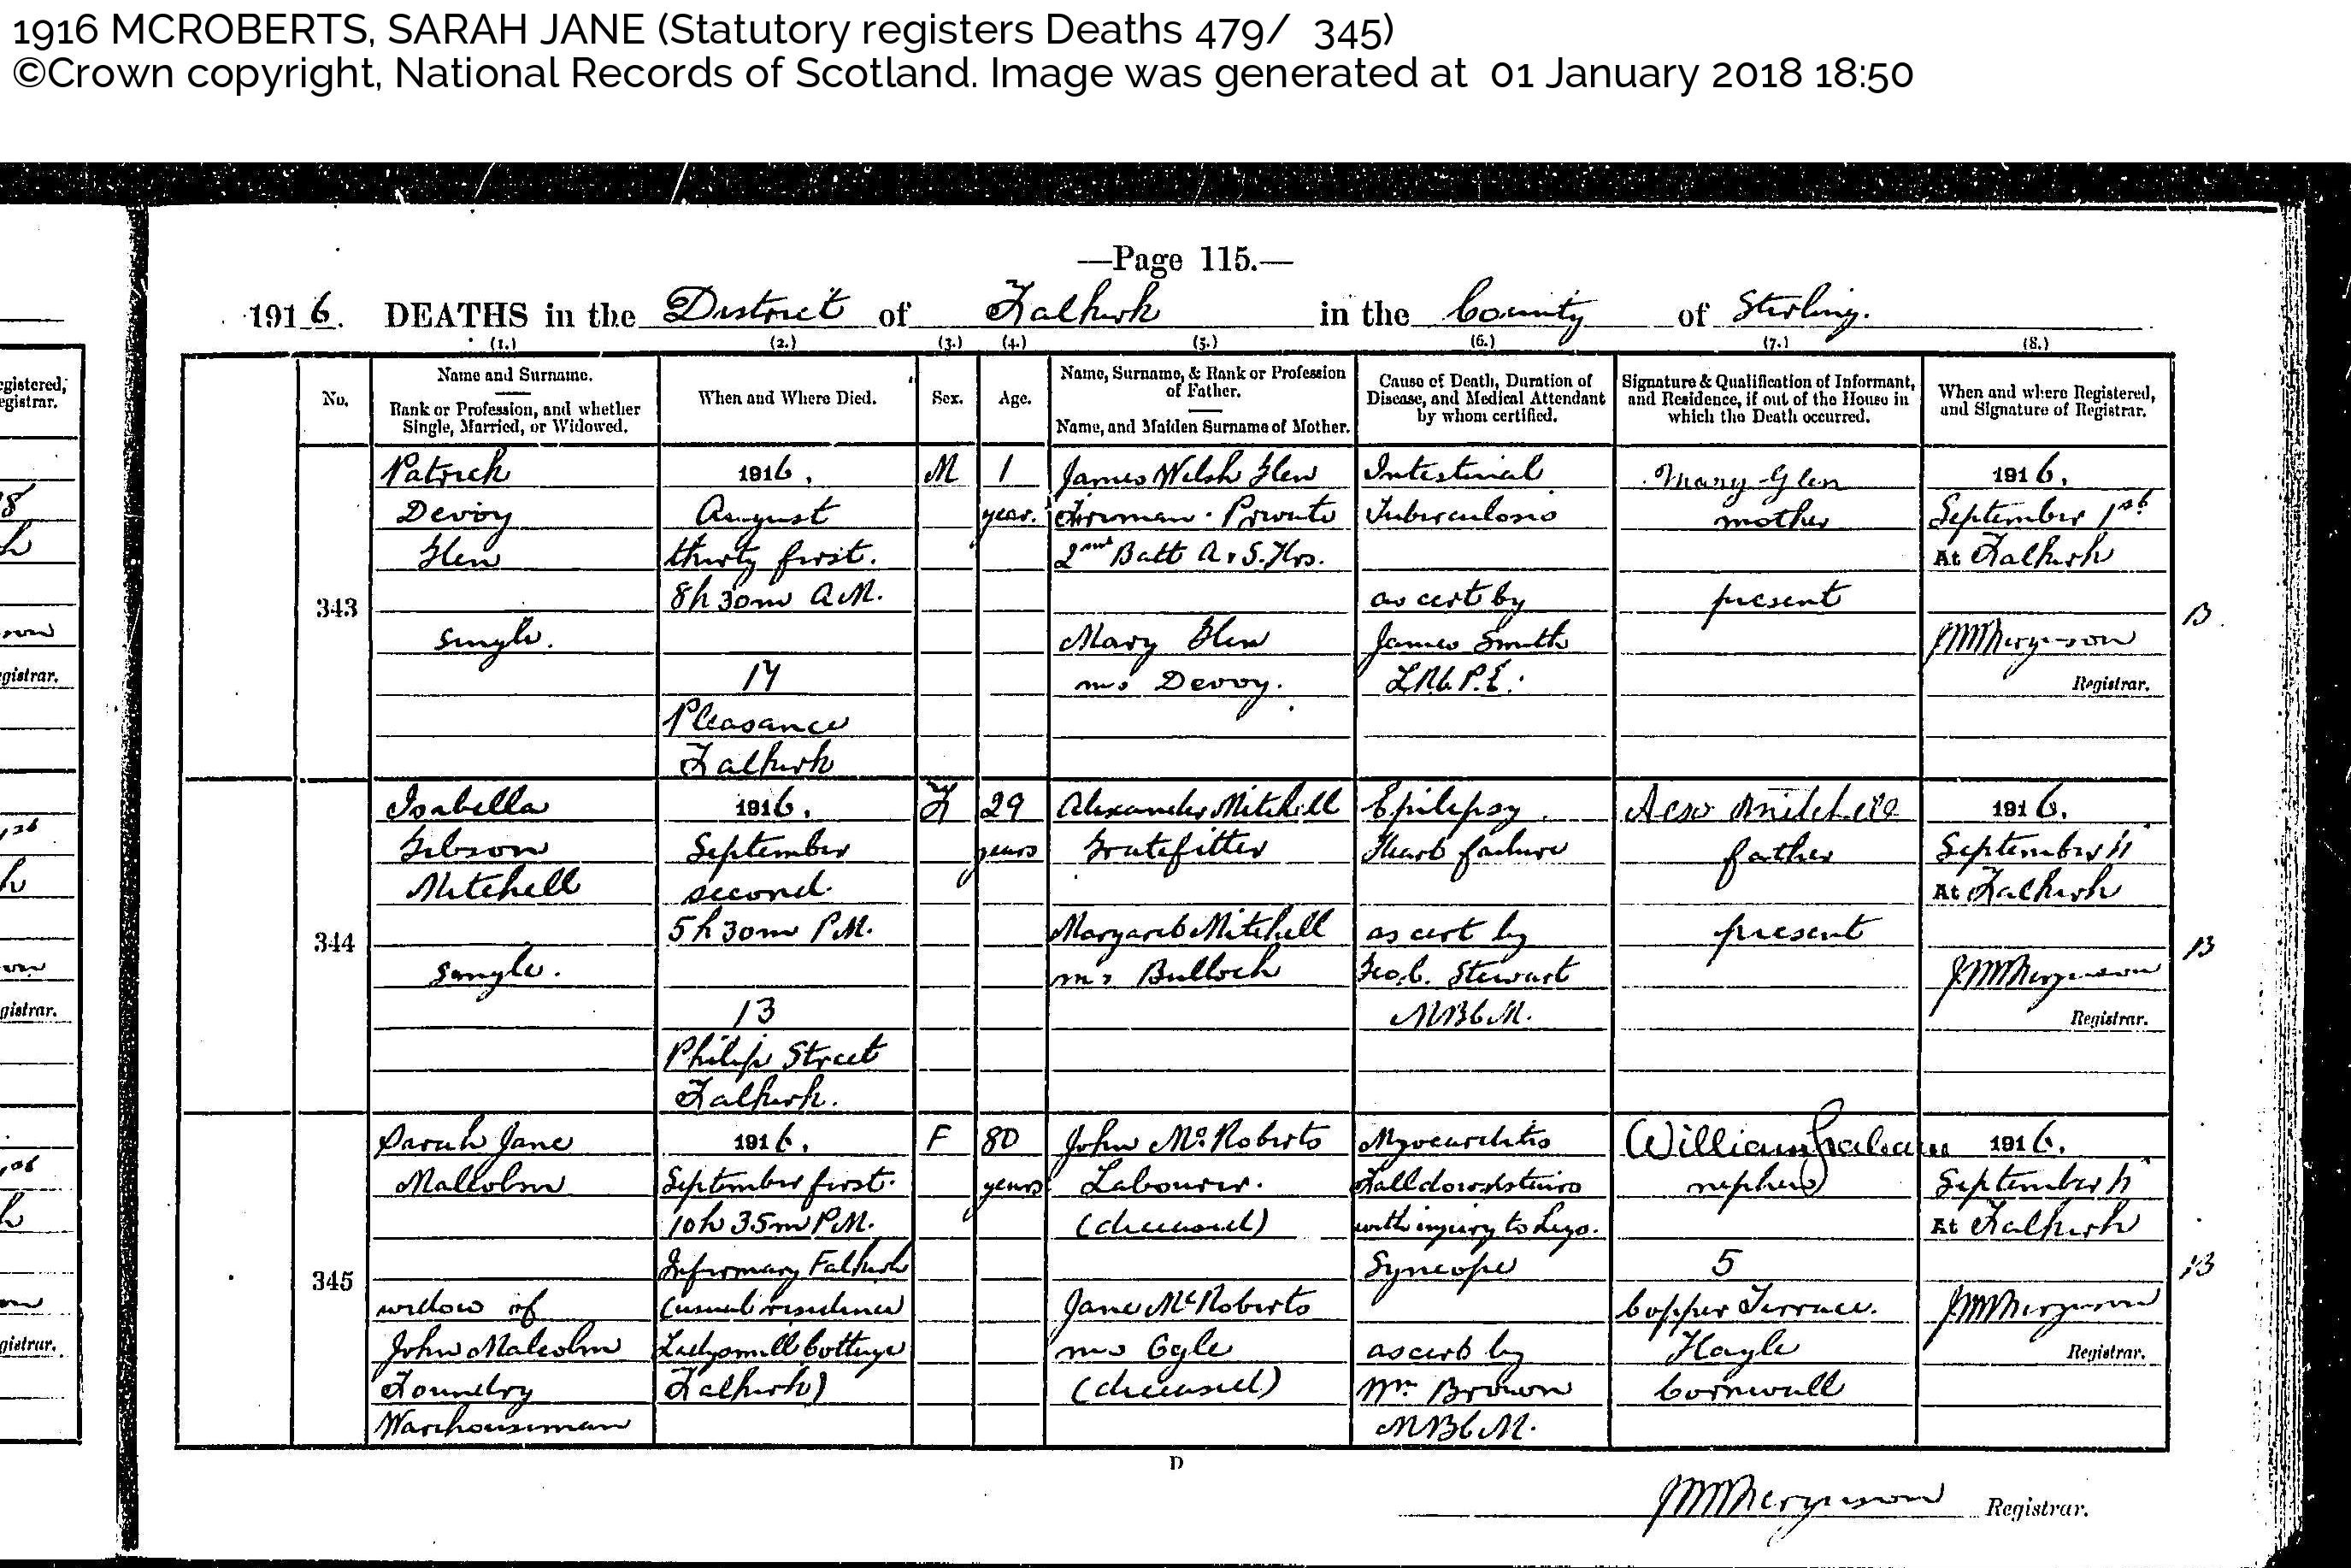 1916 MCROBERTS, SARAH JANE (Statutory registers Deaths 479/ 345)
©Crown copyright, National Records of Scotland. Image was generated at 01 January 2018 18:50
—Page 115.—
1916. DEATHS in the District of Falkirk in the County of Stirling.
(1.) (2.) (3.) (4.) (5.) (6.) (7.) (8.)
egistered,
egistrar.
No.
Name and Surname.
Rank or Profession, and whether
Single, Married, or Widowed.
When and Where Died.
Sex.
Age.
Name, Surname, & Rank or Profession
of Father.
Name, and Maiden Surname of Mother.
Cause of Death, Duration of
Disease, and Medical Attendant
by whom certified.
Signature & Qualification of Informant,
and Residence, if out of the House in
which the Death occurred.
When and where Registered,
and Signature of Registrar.
343
Patrick
Devoy
Glen
Single.
1916.
August
thirty first.
8h 30m A.M.
17
Pleasance
Falkirk
M
1
year.
James Welsh Glen
Fireman. Private
2nd Batt A & S. Hrs.
Mary Glen
m.s Devoy.
Intestinal
Tuberculosis
as cert by
James Smith
L.R.C.P.E.
Mary Glen
mother
present
1916.
September 1st
At Falkirk
Ferguson
Registrar.
B
344
Isabella
Gibson
Mitchell
Single.
1916.
September
second.
5h 30m P.M.
13
Philip Street
Falkirk.
F
29
years
Alexander Mitchell
Gratefitter
Margaret Mitchell
m.s Bulloch
Epilepsy
Heart failure
as cert by
Geo. C. Stewart
M B C M.
Alex Mitchell
father
present
1916.
September
At Falkirk
Ferguson
Registrar.
B
345
Sarah Jane
Malcolm
widow of
John Malcolm
Foundry
Warehouseman
1916.
September first.
10h 35m P.M.
Infirmary Falkirk
(usual residence
Ladysmill Cottage
Falkirk)
F
80
years
John McRoberts
Labourer.
(deceased)
Jane McRoberts
m.s Ogle
(deceased)
Myocarditis
Fall downstairs
with injury to Legs.
Syncope
as cert by
Wm. Brown
M B C M.
William Graham
nephew
5
Copper Terrace.
Hayle
Cornwall
1916.
September
At Falkirk
Ferguson
Registrar.
B
D
Ferguson Registrar.